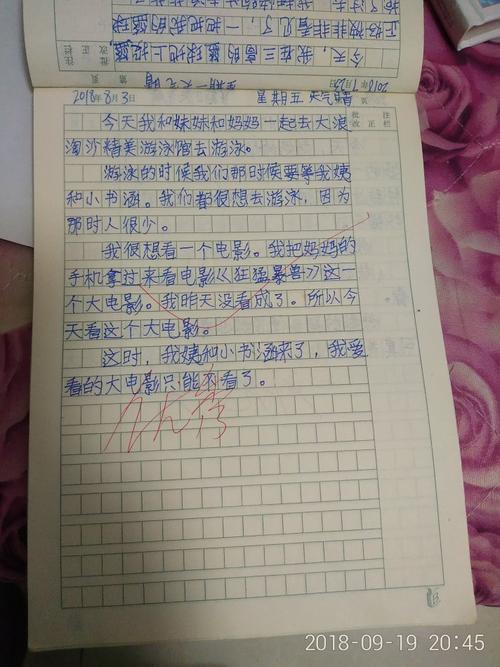 今天，我在三高的篮球地上投篮，
正好被菲菲看见了，一把把我的篮球
2018年8月3日 星期五 天气晴 页
批注
改正栏
今天我和妹妹和妈妈一起去大浪
淘沙精美游泳馆去游泳。
游泳的时候我们那时候要等我姨
和小书涵。我们都很想去游泳，因为
那时人很少。
我很想看一个电影。我把妈妈的
手机拿过来看电影《狂猛暴兽》这一
个大电影。我昨天没看成了。所以今
天看这个大电影。
这时，我姨和小书涵来了，我爱
看的大电影只能不看了。
优秀
2018-09-19 20:45